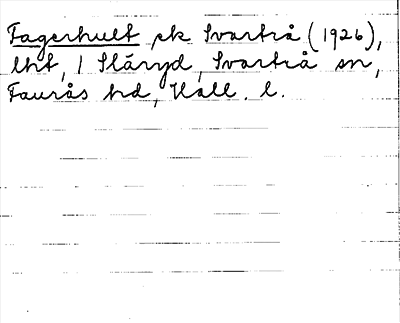 Fagerhult ek Svartrå (1926),
lht, 1 Släryd, Svartrå sn,
Faurås hd, Hall. l.